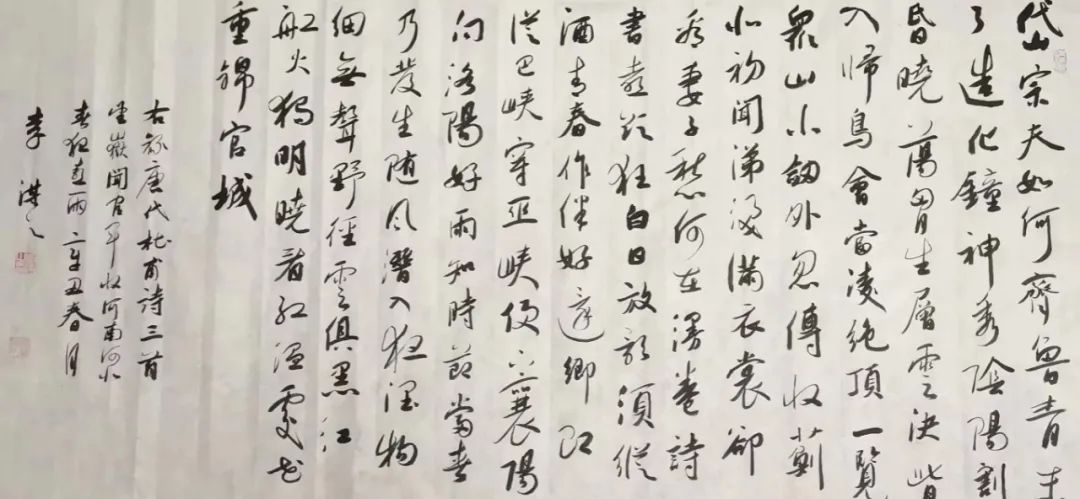 岱宗夫如何齊魯青未
了造化鐘神秀陰陽割
昏曉蕩胸生層雲決眥
入歸鳥會當凌絕頂一覽
眾山小劍外忽傳收薊
北初聞涕淚滿衣裳卻
看妻子愁何在漫卷詩
書喜欲狂白日放歌須縱
酒青春作伴好還鄉即
從巴峽穿巫峽便下襄陽
向洛陽好雨知時節當春
乃發生随風潛入夜潤物
細無聲野徑雲俱黑江
船火獨明曉看紅濕處花
重錦官城
右錄唐代杜甫詩三首
望嶽聞官軍收河南河北
春夜喜雨辛丑春月
李